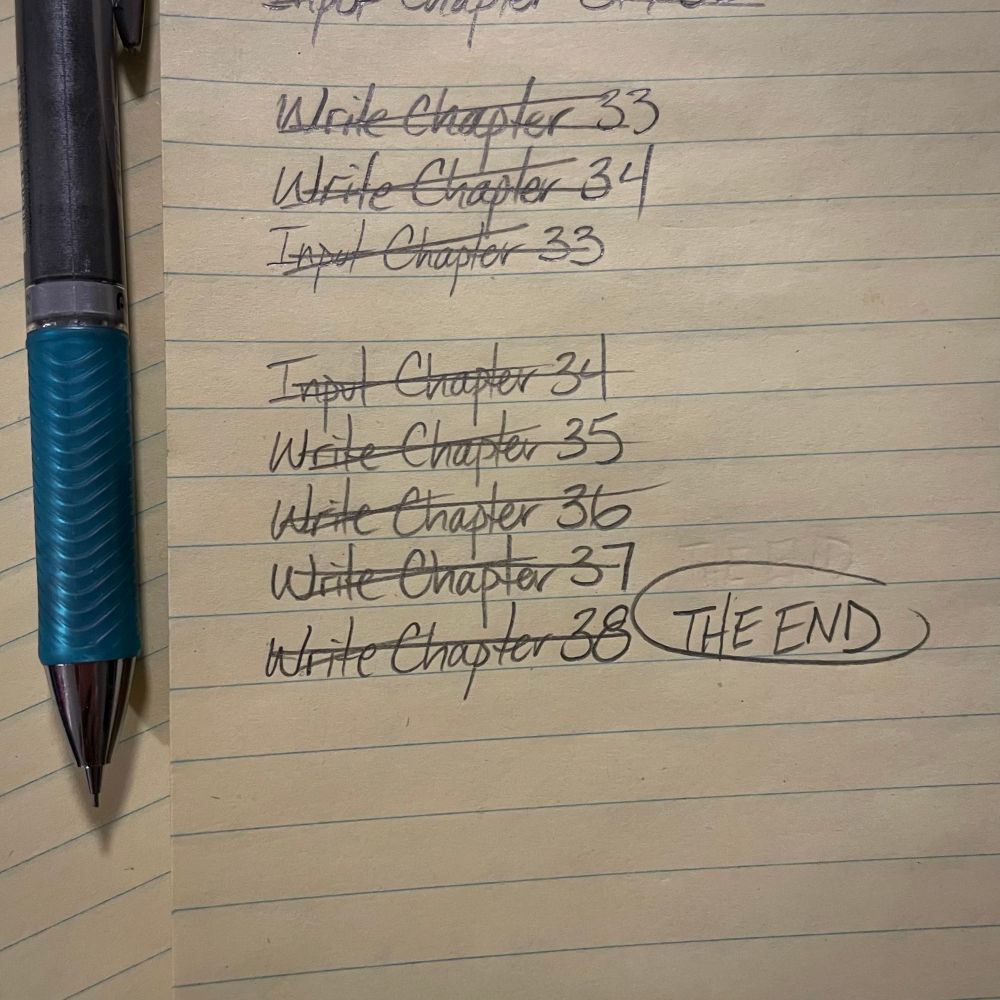 Input Chapter
Write Chapter 33
Write Chapter 34
Input Chapter 33
Input Chapter 34
Write Chapter 35
Write Chapter 36
Write Chapter 37
Write Chapter 38 THE END